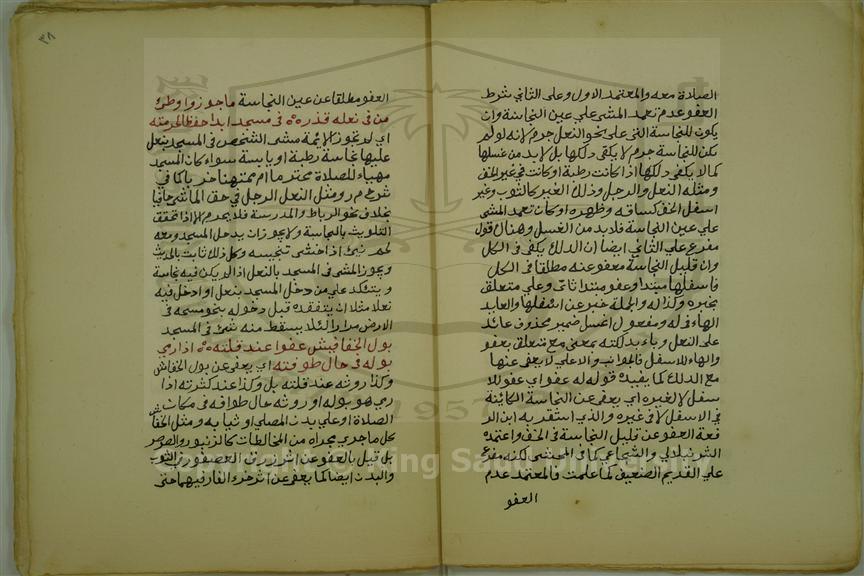 الصلاة معه والمعتمد الاول وعلى الثاني شرط
العفو عدم تعمد المشي على عين النجاسة وان
يكون للنجاسة التي على نحو النعل جرم لانه لو لم
يكن للنجاسة جرم لا يكفي دلكها بل لا بد من غسلها
كما لا يكفي دلكها اذا كانت رطبة او كانت في غير الخف
ومثله النعل والرجل وذلك الغير كالثوب وغير
اسفل الخف كساقه وظهره او كان تعمد المشي
على عين النجاسة فلا بد من الغسل وهناك قول
مفرع على الثاني ايضا ان الدلك يكفي في الكل
وان قليل النجاسة معفو عنه مطلقا في الكل
فاسفلها مبتدا وعفو مبتدا ثاني وعلى متعلق
بخبره وكذا له والجملة خبر عن اسفلها والعايد
الهاء في له ومفعول اغسل ضمير محذوف عائد
على النعل وباء بدلكته بمعنى مع متعلق بعفو
والهاء للاسفل فالجوانب والاعلى لا يعفى عنها
مع الدلك كما يفيده قوله له عفو اي عفو للا
سفل لا لغيره اي يعفى عن النجاسة الكائنة
في الاسفل لا في غيره والذي استقر به ابن الر
فعة العفو عن قليل النجاسة في الخف واعتمده
الشرنبلالي والشجاعي كما في المحشى لكنه مفرع
على القديم الضعيف كما علمت فالمعتمد عدم
العفو
٣٨
العفو مطلقا عن عين النجاسة ما جوزوا وطئ
من في نعله قذره في مسجد ابدا حفظا لحرمته
اي لم تجوز الايمة مشى الشخص في المسجد بنعل
عليها نجاسة رطبة او يابسة سواء كان المسجد
مهياء للصلاة محترما ام ممتهنا خرباكا في
شرح م ر ومثل النعل الرجل في حق الماشي حافيا
بخلاف نحو الرباط والمدرسة فلا يحرم الا اذا تحقق
التلويث بالنجاسة ولا يجوز ان يدخل المسجد ومعه
لحم نيئ اذا خشى تنجيسه وكل ذلك ثابت بالحديث
ويجوز المشى في المسجد بالنعل اذا لم يكن فيه نجاسة
ويتأكد على من دخل المسجد بنعل او ادخل فيه
نعلا مثلا ان يتفقده قبل دخوله بنحو مسحه في
الارض مرارا لئلا يسقط منه شئ في المسجد
بول الخفافيش عفوا عند قلته اذا رمي
بوله في حال طوفته اي يعفى عن بول الخفاش
وكذا روثه عند قلته بل وكذا عند كثرته اذا
رمي هو بوله او روثه حال طوافه في مكان
الصلاة او على بدن المصلي او ثيابه ومثل الخفاش
كل ما جرى مجراه من المخالطات كالزنبور والصرصر
بل قيل بالعفو عن اثر زرق العصفور في الثوب
والبدن ايضا كما يعفى عن اثر خرء الفار فيهما حتى